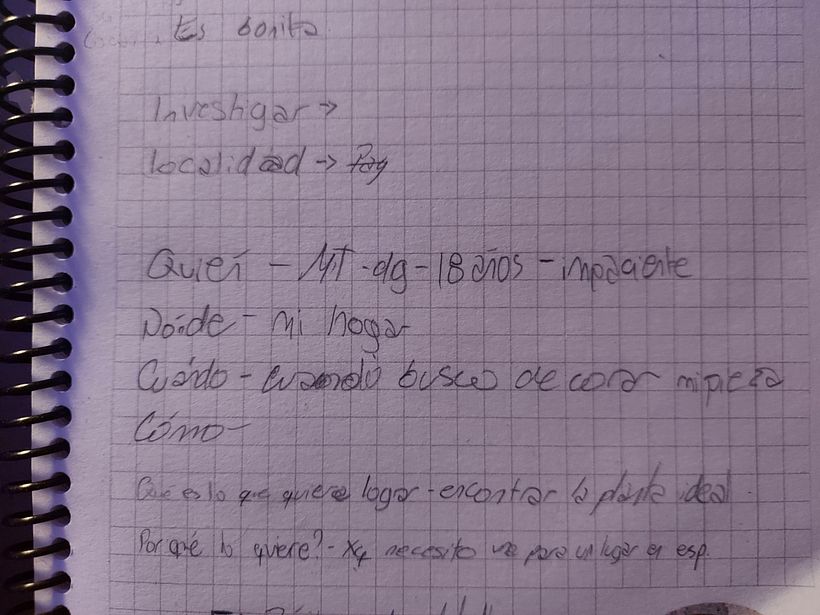 Es bonita
Investigar →
localidad →
Quién - MT - dg - 18 años - impaciente
Dónde - mi hogar
Cuándo - cuando busco decorar mi pieza
Cómo -
Qué es lo que quiere logar - encontrar la planta ideal
Por qué lo quiere? - Xq necesito una para un lugar en esp.